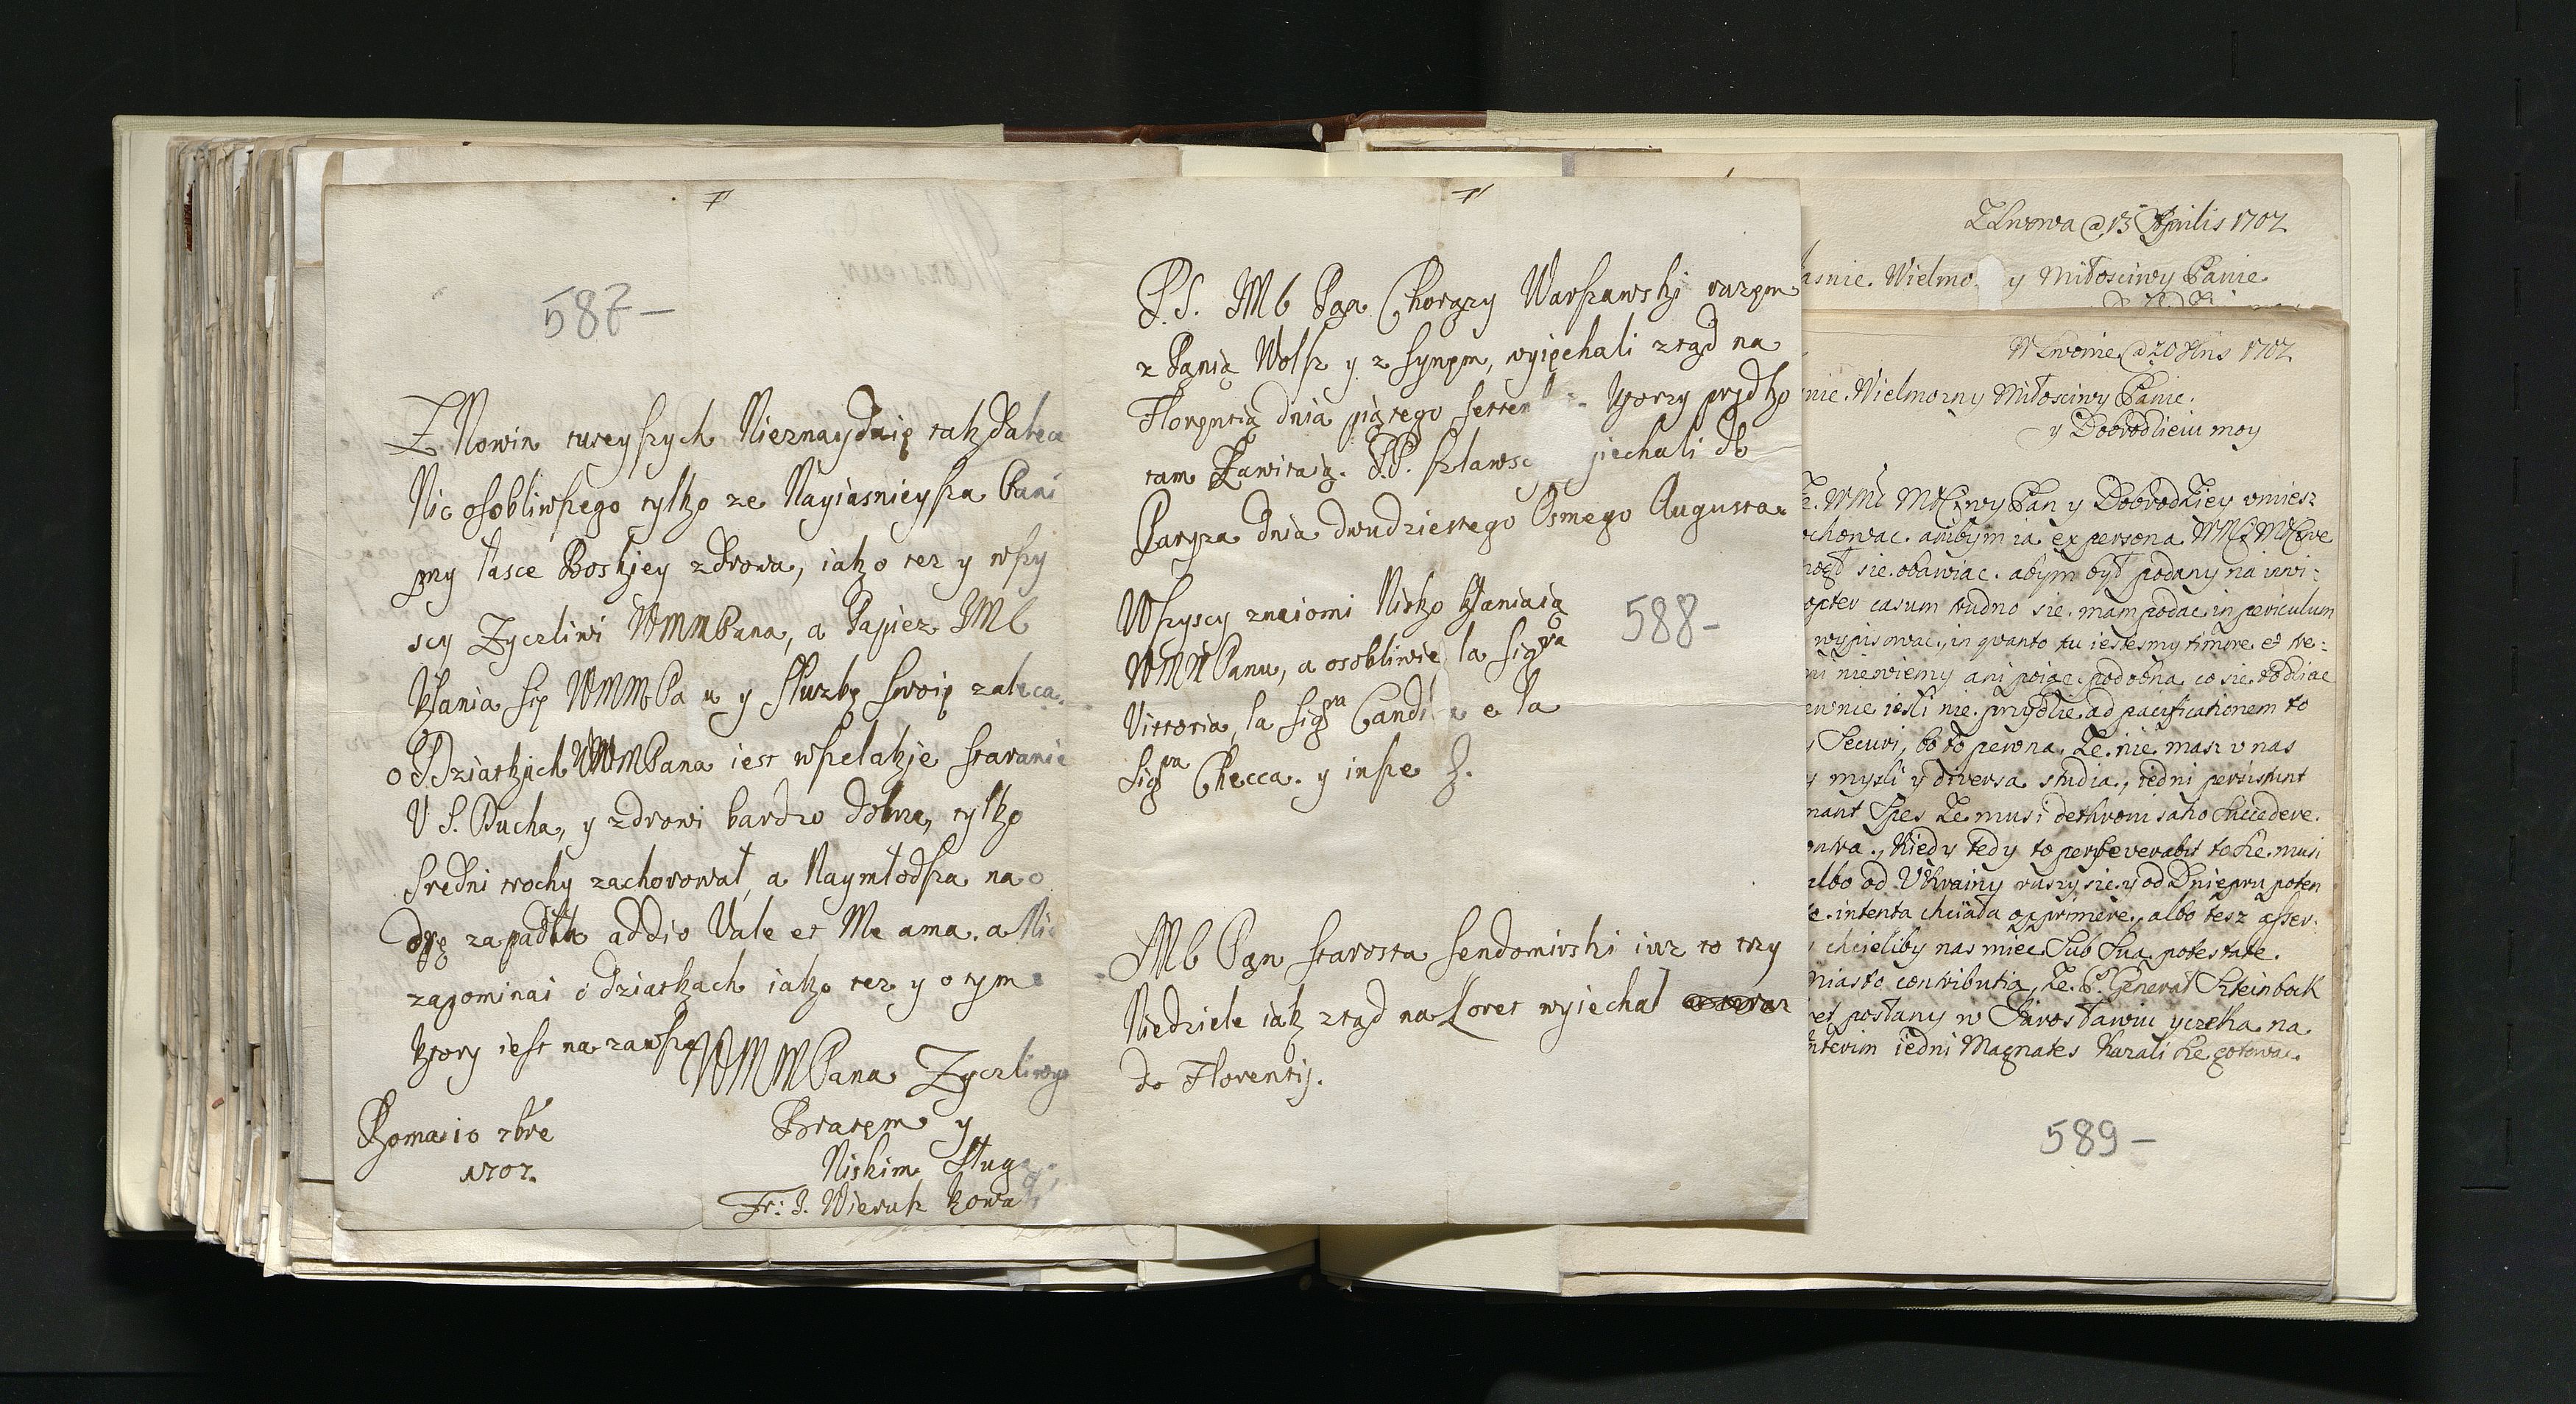 587-
Z Nowin tuteyszych Nieznayduię tak daleca
Nic osobliwszego tylko ze Nayiasnieysza Pani
my łasce Boskjey zdrowa, iako tez y wszy
scy Zyczliwi WMMPana, a Papiez JMć
kłania się WMMPa u y służbę swoię zaleca.
o Dziatkjach WMMPana iest wszelakje staranie
U S. Ducha, y zdrowi bardzo dobrze, tylko
Sredni trochy zachorował, a Naymłodsza na o
drę zapadła addio Vale et Me ama. a Nie
zapominai o dziatkach iako tez y o tym
ktory iest na zawsze WMMPana Zyczliwym
Bratem y
Niskim Sługą
Roma 10 7bre
1702.
Fr: J. Wieruk kowa
P.S. JMć Pan Chorązy Warszawskj razem
z Panią Wolsz y z synem, wyiechali ztąd na
Florentią dnia piątego settem ktorzy prędko
tam Zawitaią. PP. szlawsc jiechali do
Paryza dnia dwudziestego Osmego Augusta.
Wszyscy znaiomi Nisko kłaniaią
WMMPanu, a osobliwie la Sigra
Vittoria, la Sigra Candi a e la
Sigra Checca. y insze
588-
JMć Pan starosta Sendomirski iuz to trzy
Niedziele iak ztąd na Loret wyiechał
do Florentij.
Z Lwowa @ 13 Aprilis 1702
asnie. Wielmo y Miłosciwy Panie.
W Lwowie @ 20 1702
nie. Wielmozny Miłosciwy Panie.
y Dobrodzieiu moy
Ze. WMć MMciwy Pan y Dobrodziey umiesz
chowac. anibym ia ex persona
mogł sie. obawiac. abym był podany na inwi:
opter casum trudno sie. mam podac in periculum
wypisowac, in quanto tu iestesmy timore et te:
mi niewiemy ani poiąc podobna co sie. rodziac
ewnie iesli nie. przydzie ad pacificationem to
Securi, bo to pewna, Ze. nie masz u nas
y mysli y diversa studia, iedni persistunt
mant Spes Ze musi dethronisatio succedere.
ontra, Kiedy tedy to perseverabit to Ze. musi
albo od Ukrainy ruszy sie. y od Dniepru poten
e. intenta chciała opprimere, albo tesz asser:
chcieliby nas miec Sub Sua potestate.
miasto contributia, Ze. P. Generał Szteinbock
et posłany w Jarosławiu y czeka na
nterim iedni Magnates kazali se gotowac.
589-